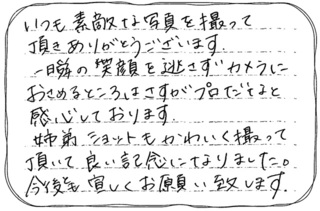 いつも素敵な写真を撮って
頂きありがとうございます.
一瞬の笑顔を逃さずカメラに
おさめるところはさすがプロだなと
感心しております.
姉弟ショットもかわいく撮って
頂いて良い記念になりました。
今後も宜しくお願い致します.